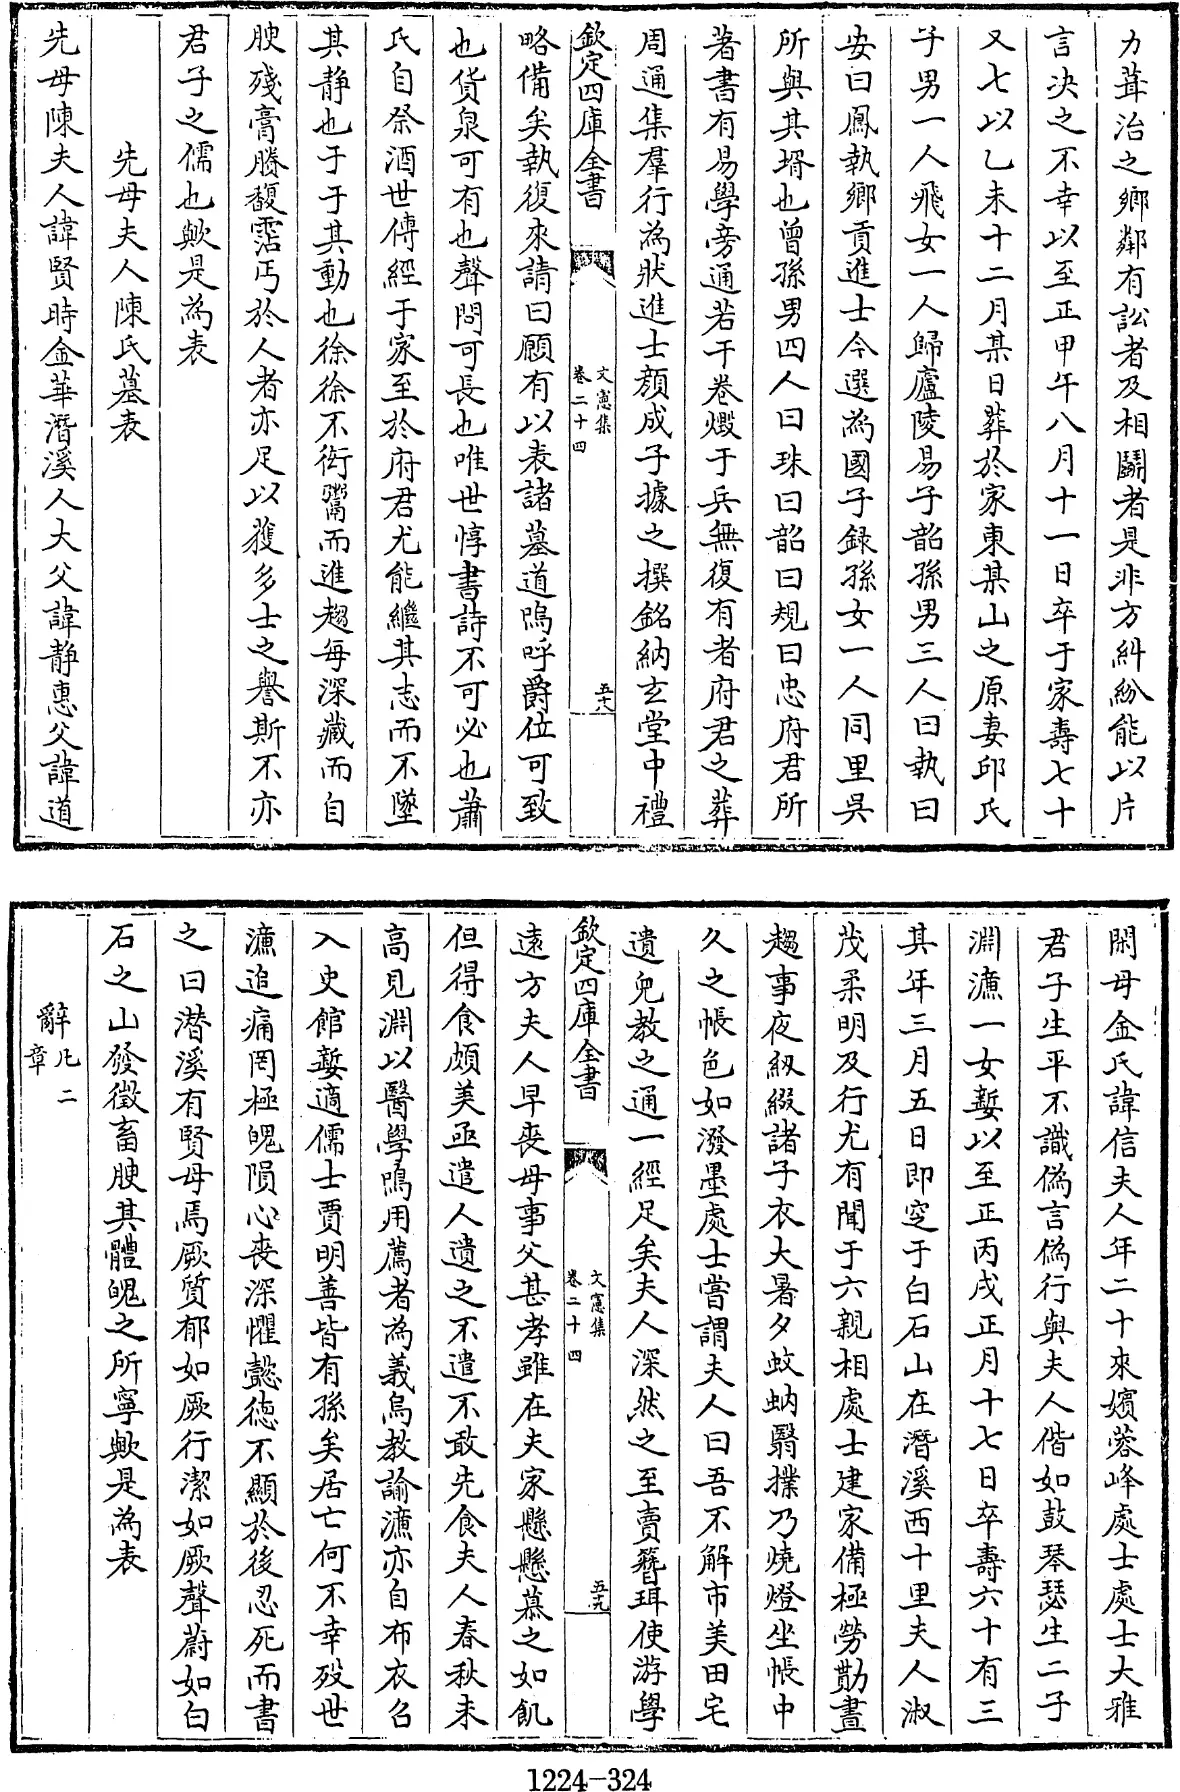 力葺治之鄉鄰有訟者及相鬭者是非方糾紛能以片
言決之不幸以至正甲午八月十一日卒于家壽七十
又七以乙未十二月某日葬於家東某山之原妻邱氏
子男一人飛女一人歸廬陵易子韶孫男三人曰執曰
安曰鳳執鄉貢進士今選為國子録孫女一人同里吳
所與其壻也曾孫男四人曰珠曰韶曰規曰忠府君所
著書有易學旁通若干卷燬于兵無復有者府君之葬
周通集羣行為狀進士顏成子據之撰銘納玄堂中禮
欽定四庫全書
文憲集
卷二十四
五十八
略備矣執復來請曰願有以表諸墓道嗚呼爵位可致
也貨泉可有也聲問可長也唯世惇書詩不可必也蕭
氏自祭酒世傳經于家至於府君尤能繼其志而不墜
其静也于于其動也徐徐不衒鬻而進趨每深藏而自
腴殘膏賸馥霑丐於人者亦足以獲多士之譽斯不亦
君子之儒也歟是為表
先母夫人陳氏墓表
先母陳夫人諱賢時金華潛溪人大父諱静惠父諱道
閑母金氏諱信夫人年二十來嬪蓉峰處士處士大雅
君子生平不識偽言偽行與夫人偕如鼓琴瑟生二子
淵濂一女娎以至正丙戌正月十七日卒壽六十有三
其年三月五日即窆于白石山在潛溪西十里夫人淑
茂柔明及行尤有聞于六親相處士建家備極勞勩晝
趨事夜紉綴諸子衣大暑夕蚊蚋翳撲乃燒燈坐帳中
久之帳色如潑墨處士嘗謂夫人曰吾不解市美田宅
遺兒教之通一經足矣夫人深然之至賣簪珥使游學
欽定四庫全書
文憲集
卷二十四
五十九
遠方夫人早喪母事父甚孝雖在夫家懸懸慕之如飢
但得食頗美亟遣人遺之不遣不敢先食夫人春秋未
高見淵以醫學鳴用薦者為義烏教諭濂亦自布衣召
入史館娎適儒士賈明善皆有孫矣居亡何不幸歿世
濂追痛罔極魄隕心喪深懼懿德不顯於後忍死而書
之曰潛溪有賢母焉厥質郁如厥行潔如厥聲蔚如白
石之山發徵畜腴其體魄之所寧歟是為表
辭凡二
章
1224-324